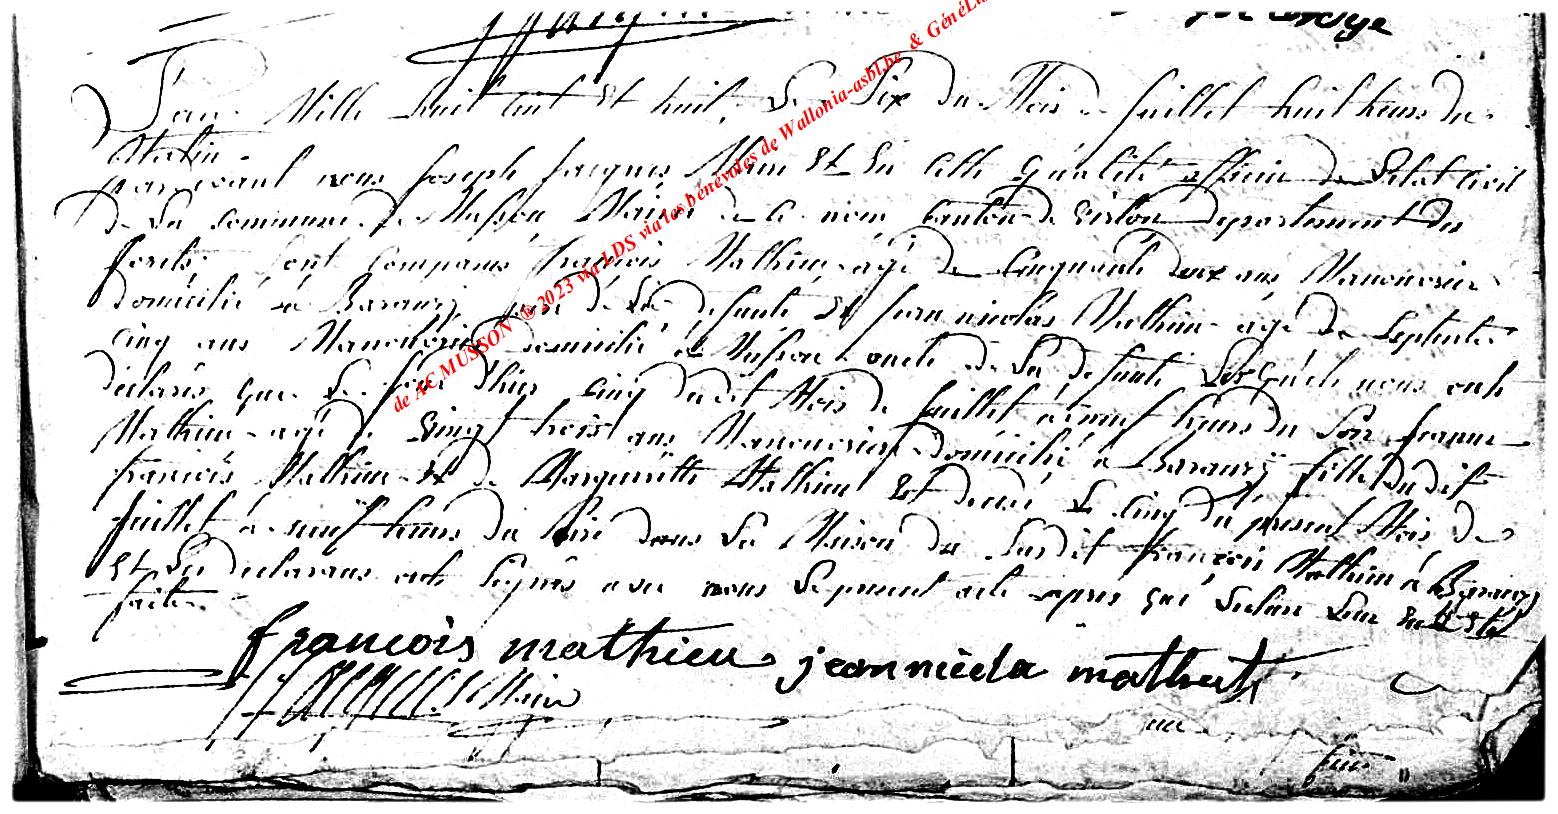 L'an Mille huit cent Et huit, Le Six du Mois de Juillet huit heures du
Matin.
pardevant nous Joseph Jacques Maire Et En Cette Qualité officier De L'Etat Civil
de La commune De Musson Mairie de Ce nom Canton de Virton departement des
forets Sont Comparus françois Mathieu agé de Cinquante deux ans Manouvrier
domicilié a Baranzÿ pere de La defunte Et Jean nicolas Mathieu agé De Septente
cinq ans Manouvrier domicilié a Musson oncle de La defunte Lesquels nous onts
declarés que Le jour d'hier cinq dudit Mois de Juillet a neuf heures du Soir Jeanne
Mathieu agé de Vingt trois ans Manouvriere domicilié a Baranzÿ fille Dudit
françois Mathieu Et de Margueritte Mathieu Est decedé Le Cinq du present Mois de
Juillet a neuf heures du Soir dans La Maison du Susdit françois Mathieu a Baranzÿ
Et Les declarans onts Signés avec nous Le present acte apres que Lecture Leur En at Eté
faite.
françois mathieu jeannicola mathieu
Maire
de AC MUSSON ® 2023 via LDS via les bénévoles de Wallonia-asbl.be & GénéLu